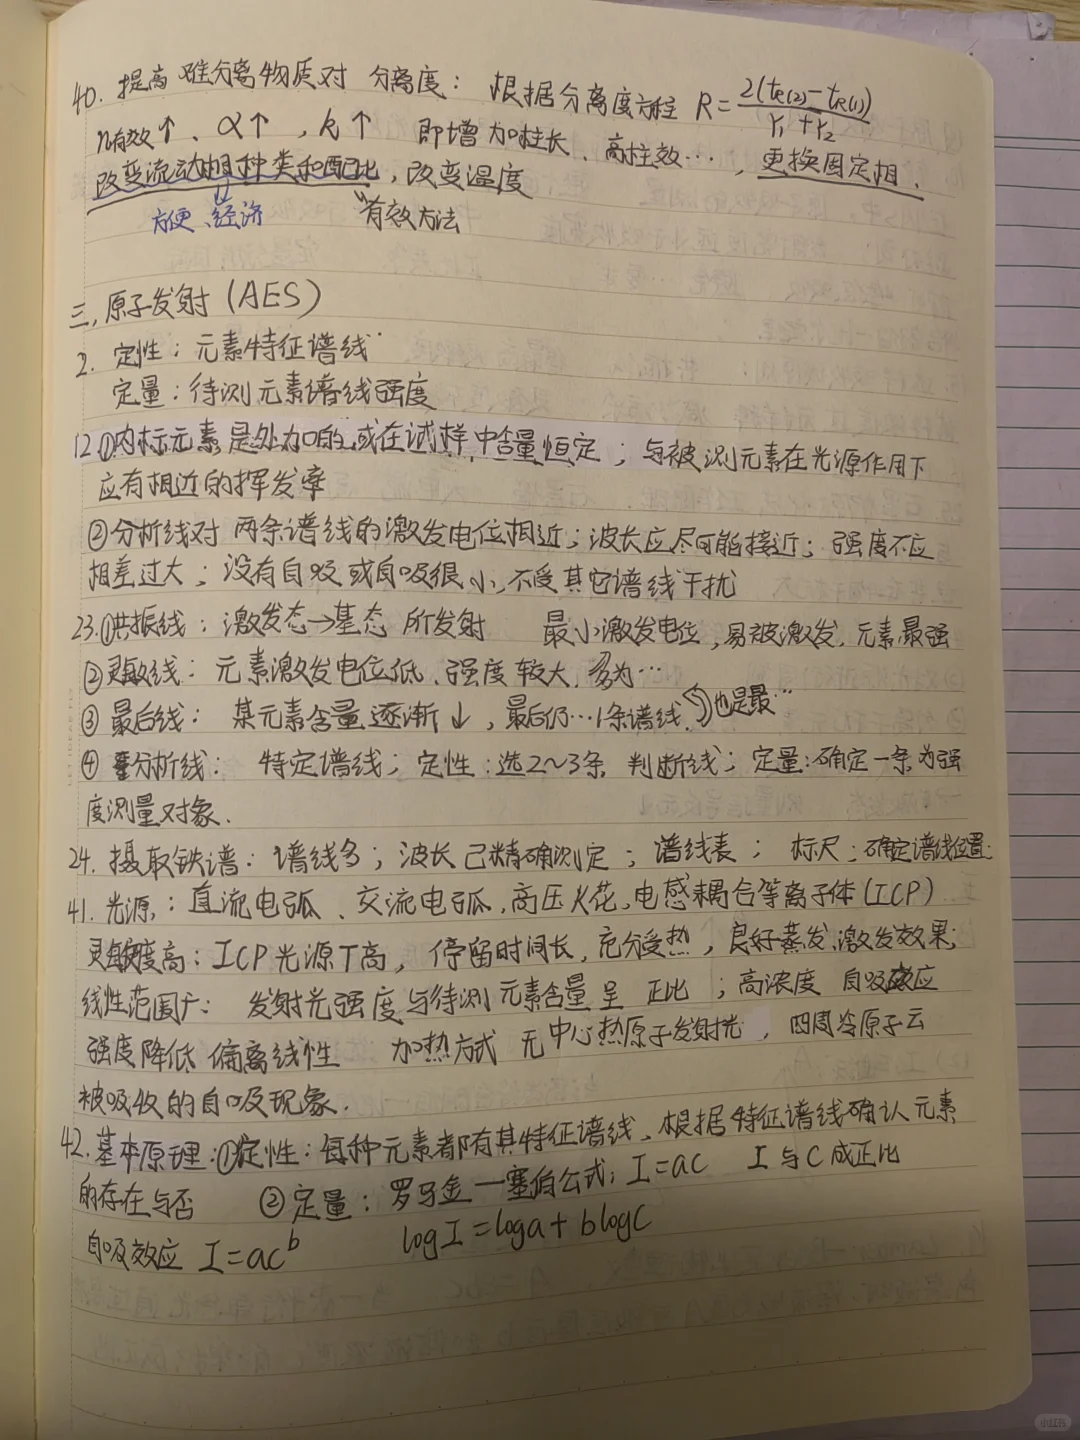 40. 提高 难分离物质对 分离度： 根据分离度方程 R = 2(tR(2)−tR(1)) / Y₁+Y₂
n有效↑、α↑，k↑ 即增加柱长、高柱效…，更换固定相.
改变流动相种类和配比，改变温度
方便、经济 有效方法
三，原子发射（AES）
2. 定性：元素特征谱线
定量：待测元素谱线强度
12.①内标元素是外加的或在试样中含量恒定；与被测元素在光源作用下
应有相近的挥发率
②分析线对 两条谱线的激发电位相近；波长应尽可能接近；强度不应
相差过大；没有自吸或自吸很小，不受其它谱线干扰
23.①共振线：激发态→基态 所发射 最小激发电位，易被激发，元素最强
②灵敏线：元素激发电位低、强度较大，多为…
③ 最后线： 某元素含量逐渐↓，最后仍…1条谱线. 也是最…
④ 分析线： 特定谱线；定性：选2~3条 判断线；定量：确定一条为强
度测量对象.
24. 摄取铁谱：谱线多；波长已精确测定；谱线表；标尺：确定谱线位置.
41. 光源：直流电弧、交流电弧，高压火花，电感耦合等离子体（ICP）
灵敏度高：ICP光源T高，停留时间长，充分受热，良好蒸发、激发效果；
线性范围广： 发射光强度与待测元素含量呈 正比；高浓度 自吸效应
强度降低 偏离线性 加热方式 无中心热原子发射光，四周冷原子云
被吸收的自吸现象.
42.基本原理：①定性：每种元素都有其特征谱线、根据特征谱线确认元素
的存在与否 ②定量：罗马金—塞伯公式：I=ac I与C成正比
自吸效应 I=acᵇ logI=loga+blogC
小红书